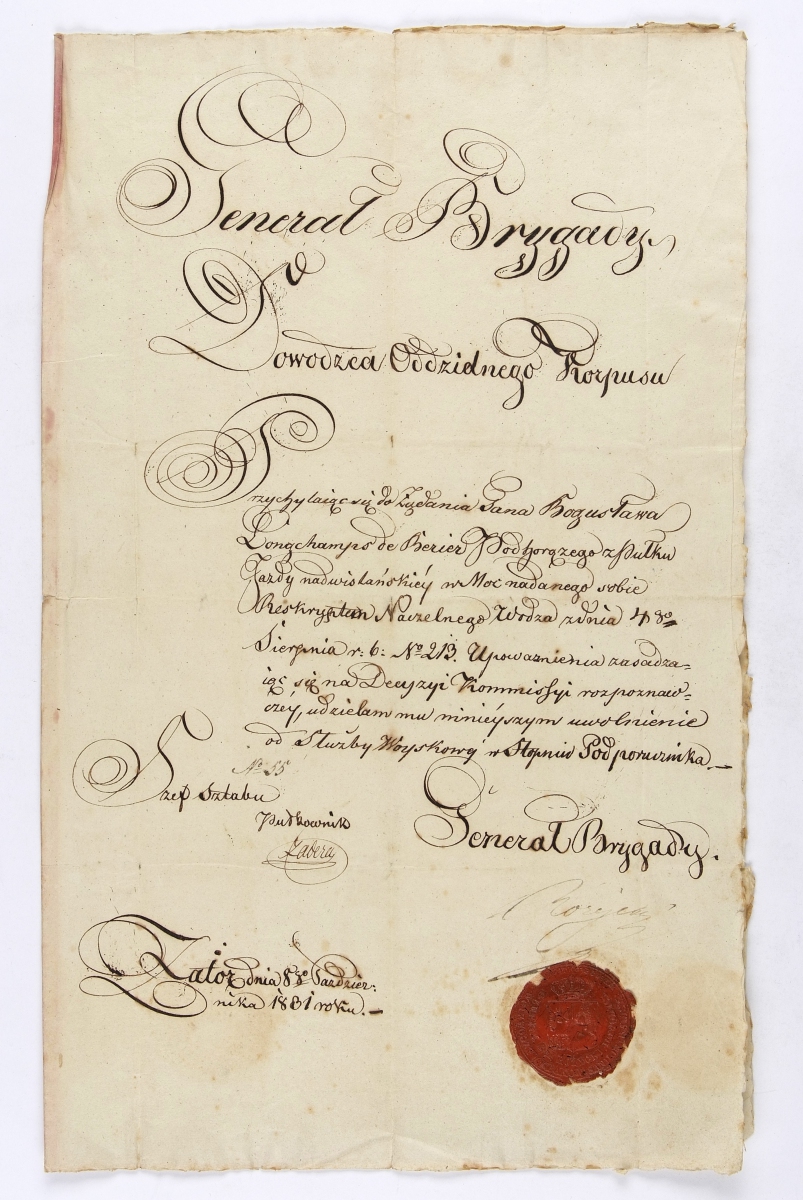 Generał Brygady
Dowodzca Oddzielnego Korpusu
Przychylaiąc się do Żądania Pana Bogusława
Longchamps de Berier Podhorązego z Pułku
Jazdy nadwislańskiéy w Moc nadanego sobie
Reskryptem Naczelnego Wodza z dnia 48º
Sierpnia r: b: Nº 213. Upoważnienia zasadza-
iąc się na Decyzyi Kommissyi rozpoznaw-
czéy, udzielam mu ninieyszym uwolnienie
od Służby Woyskowy w Stopniu Podporucznika.—
Nº 55
Szef Sztabu
Pułkownik
Zabera
Generał Brygady.
Zator dnia 8go Paździer:
nika 1831 roku.—